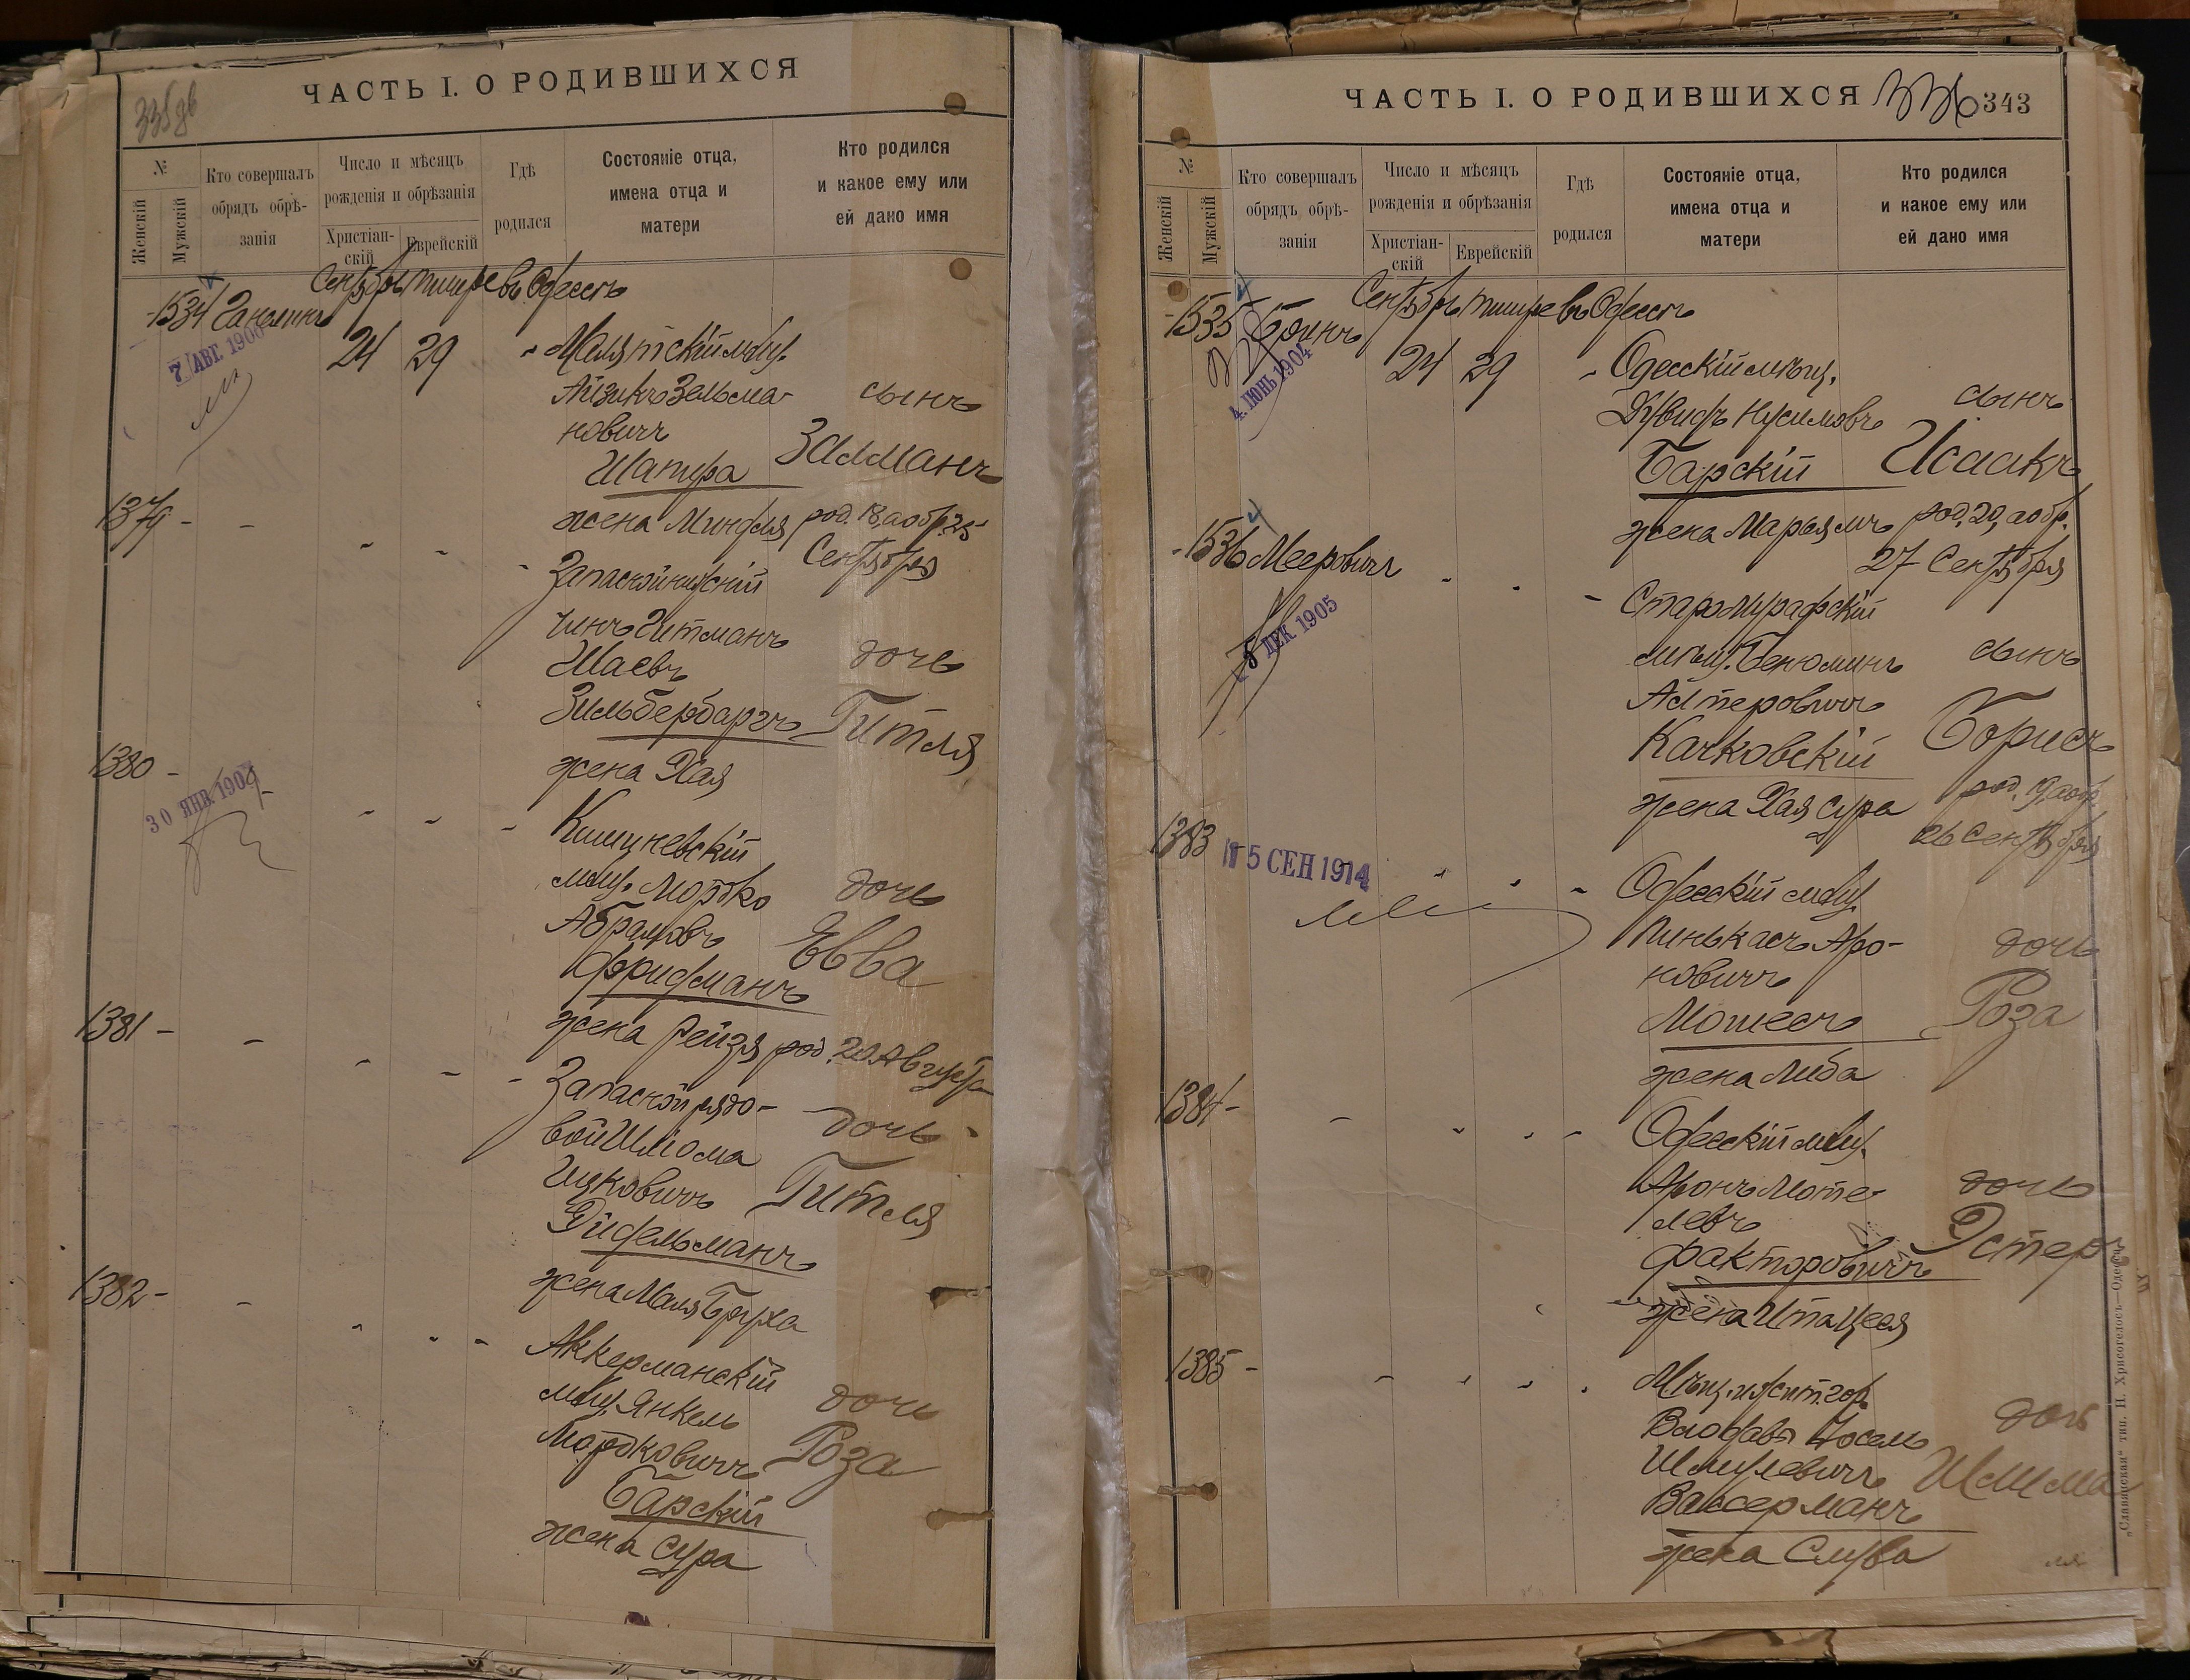 ЧАСТЬ I. О РОДИВШИХСЯ
№
Женскій
Мужскій
Кто совершалъ
обрядъ обрѣ-
занія
Число и мѣсяцъ
рожденія и обрѣзанія
Христіан-
скій
Еврейскій
Гдѣ
родился
Состояніе отца,
имена отца и
матери
Кто родился
и какое ему или
ей дано имя
1534
Сентябрь тишре въ Одессѣ
7 АВГ. 1900
24 29
мѣщ.
Айзикъ Зельма-
новичъ
сынъ
Шапира
Залманъ
жена Миндля
род. 18, а обр. 25
Сентября
1379 -
Запасной
чинъ Гитманъ
Шаевъ
дочь
Зильбербаргъ
Гитля
жена Хая
1380 -
30 ЯНВ.
Кишиневскій
мѣщ. Мордко
дочь
Абрамовъ
Евва
Фридманъ
жена Рейзя
род. 20 Августа
1381 -
Запасной рядо-
вой Шлiома
дочь
Ицковичъ
Гитля
Эйдельманъ
жена Маля Бруха
1382 -
Аккерманскій
мѣщ. Янкель
дочь
Мордковичъ
Роза
Барскій
жена Сура
ЧАСТЬ I. О РОДИВШИХСЯ
336
343
№
Женскій
Мужскій
Кто совершалъ
обрядъ обрѣ-
занія
Число и мѣсяцъ
рожденія и обрѣзанія
Христіан-
скій
Еврейскій
Гдѣ
родился
Состояніе отца,
имена отца и
матери
Кто родился
и какое ему или
ей дано имя
1535
Сентябрь тишре въ Одессѣ
4. ІЮНЬ 1904
24 29
Одесскій мѣщ.
Дувидъ Нусимовъ
сынъ
Барскій
Исаакъ
жена Марьямъ
род. 20, а обр.
27 Сентября
1536 Мееровичъ
8 ДЕК 1905
Старомурафскій
мѣщ. Бенюминъ
сынъ
Алтеровичъ
Качковскій
Борисъ
жена Хая Сура
род. 19, а обр.
26 Сентября
1383
15 СЕН 1914
Одесскій мѣщ.
Пинькасъ Аро-
новичъ
дочь
Мошесъ
Роза
жена Либа
1384 -
Одесскій мѣщ.
Аронъ Моте-
левъ
дочь
Факторовичъ
Эстеръ
жена Ита Цеся
1385 -
Влодавы Іосель
дочь
Шмулевичъ
Вассерманъ
жена Слува
„Славянская“ тип. Н. Хрисогелосъ—Одесса